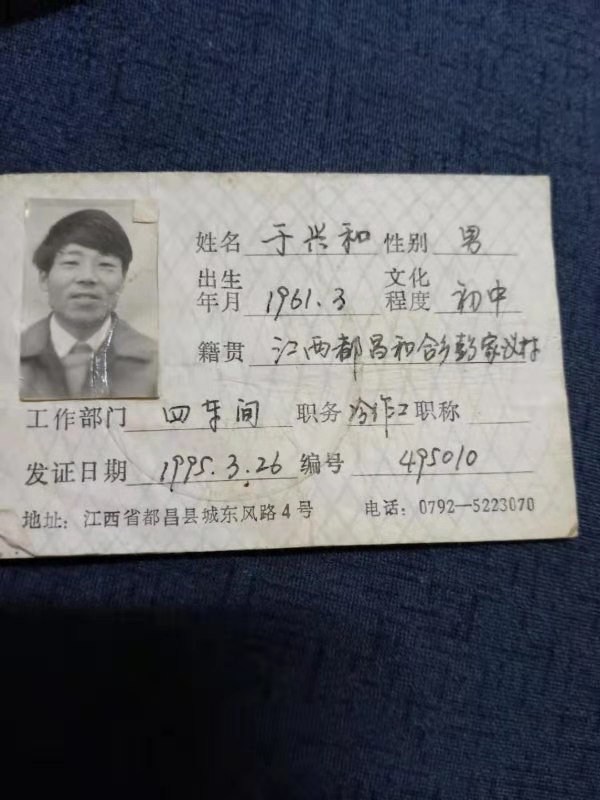 姓名 于兴和 性别 男
出生年月 1961.3 文化程度 初中
籍贯 江西都昌和合乡彭家议村
工作部门 四车间 职务 冷作工 职称
发证日期 1995.3.26 编号 495010
地址: 江西省都昌县城东风路4号 电话: 0792—5223070